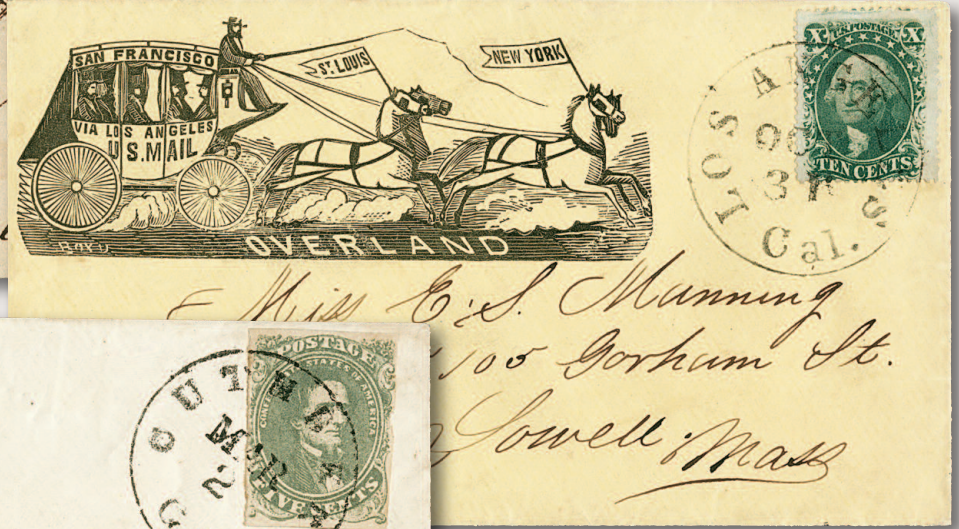 SAN FRANCISCO
VIA LOS ANGELES
U.S. MAIL
ST. LOUIS
NEW YORK
OVERLAND
X U.S. POSTAGE X
TEN CENTS
LOS ANGE S
Cal.
Miss E. S. Manning
105 Gorham St.
Lowell
Mass
POSTAGE
CONFEDERATE STATES OF AMERICA
FIVE CENTS
MAR